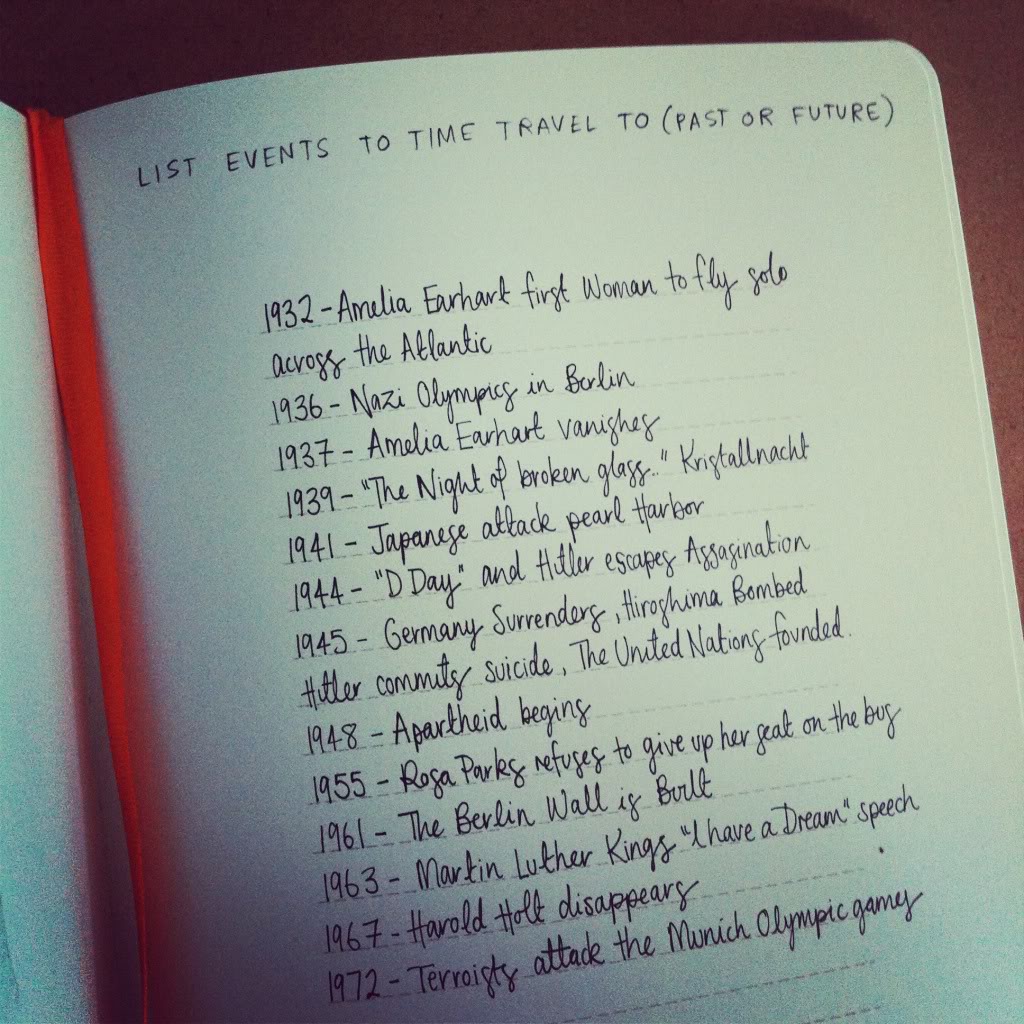 LIST EVENTS TO TIME TRAVEL TO (PAST OR FUTURE)
1932 - Amelia Earhart first Woman to fly solo
across the Atlantic
1936 - Nazi Olympics in Berlin
1937 - Amelia Earhart vanishes
1939 - "The Night of broken glass.." Kristallnacht
1941 - Japanese attack pearl Harbor
1944 - "D Day" and Hitler escapes Assasination
1945 - Germany Surrenders, Hiroshima Bombed
Hitler commits suicide, The United Nations founded.
1948 - Apartheid begins
1955 - Rosa Parks refuses to give up her seat on the bus
1961 - The Berlin Wall is Built
1963 - Martin Luther Kings "I have a Dream" speech
1967 - Harold Holt disappears
1972 - Terroists attack the Munich Olympic games